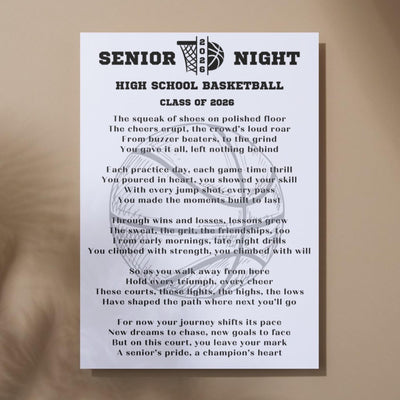 SENIOR 2026 NIGHT
HIGH SCHOOL BASKETBALL
CLASS OF 2026
The squeak of shoes on polished floor
The cheers erupt, the crowd's loud roar
From buzzer beaters, to the grind
You gave it all, left nothing behind
Each practice day, each game-time thrill
You poured in heart, you showed your skill
With every jump shot, every pass
You made the moments built to last
Through wins and losses, lessons grew
The sweat, the grit, the friendships, too
From early mornings, late-night drills
You climbed with strength, you climbed with will
So as you walk away from here
Hold every triumph, every cheer
These courts, these lights, the highs, the lows
Have shaped the path where next you'll go
For now your journey shifts its pace
New dreams to chase, new goals to face
But on this court, you leave your mark
A senior's pride, a champion's heart